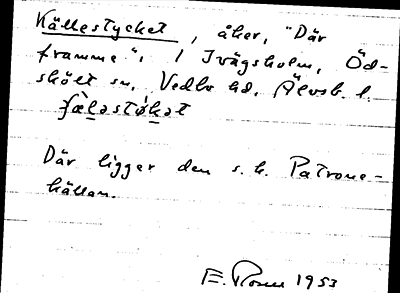 Källestycket, åker, "Där
framme", i Ivägsholm, Öd-
skölt sn, Vedbo hd, Älvsb. l.
fæ̀ləstỳkət
Där ligger den s.k. Patrone-
källan.
E. Rosen 1953